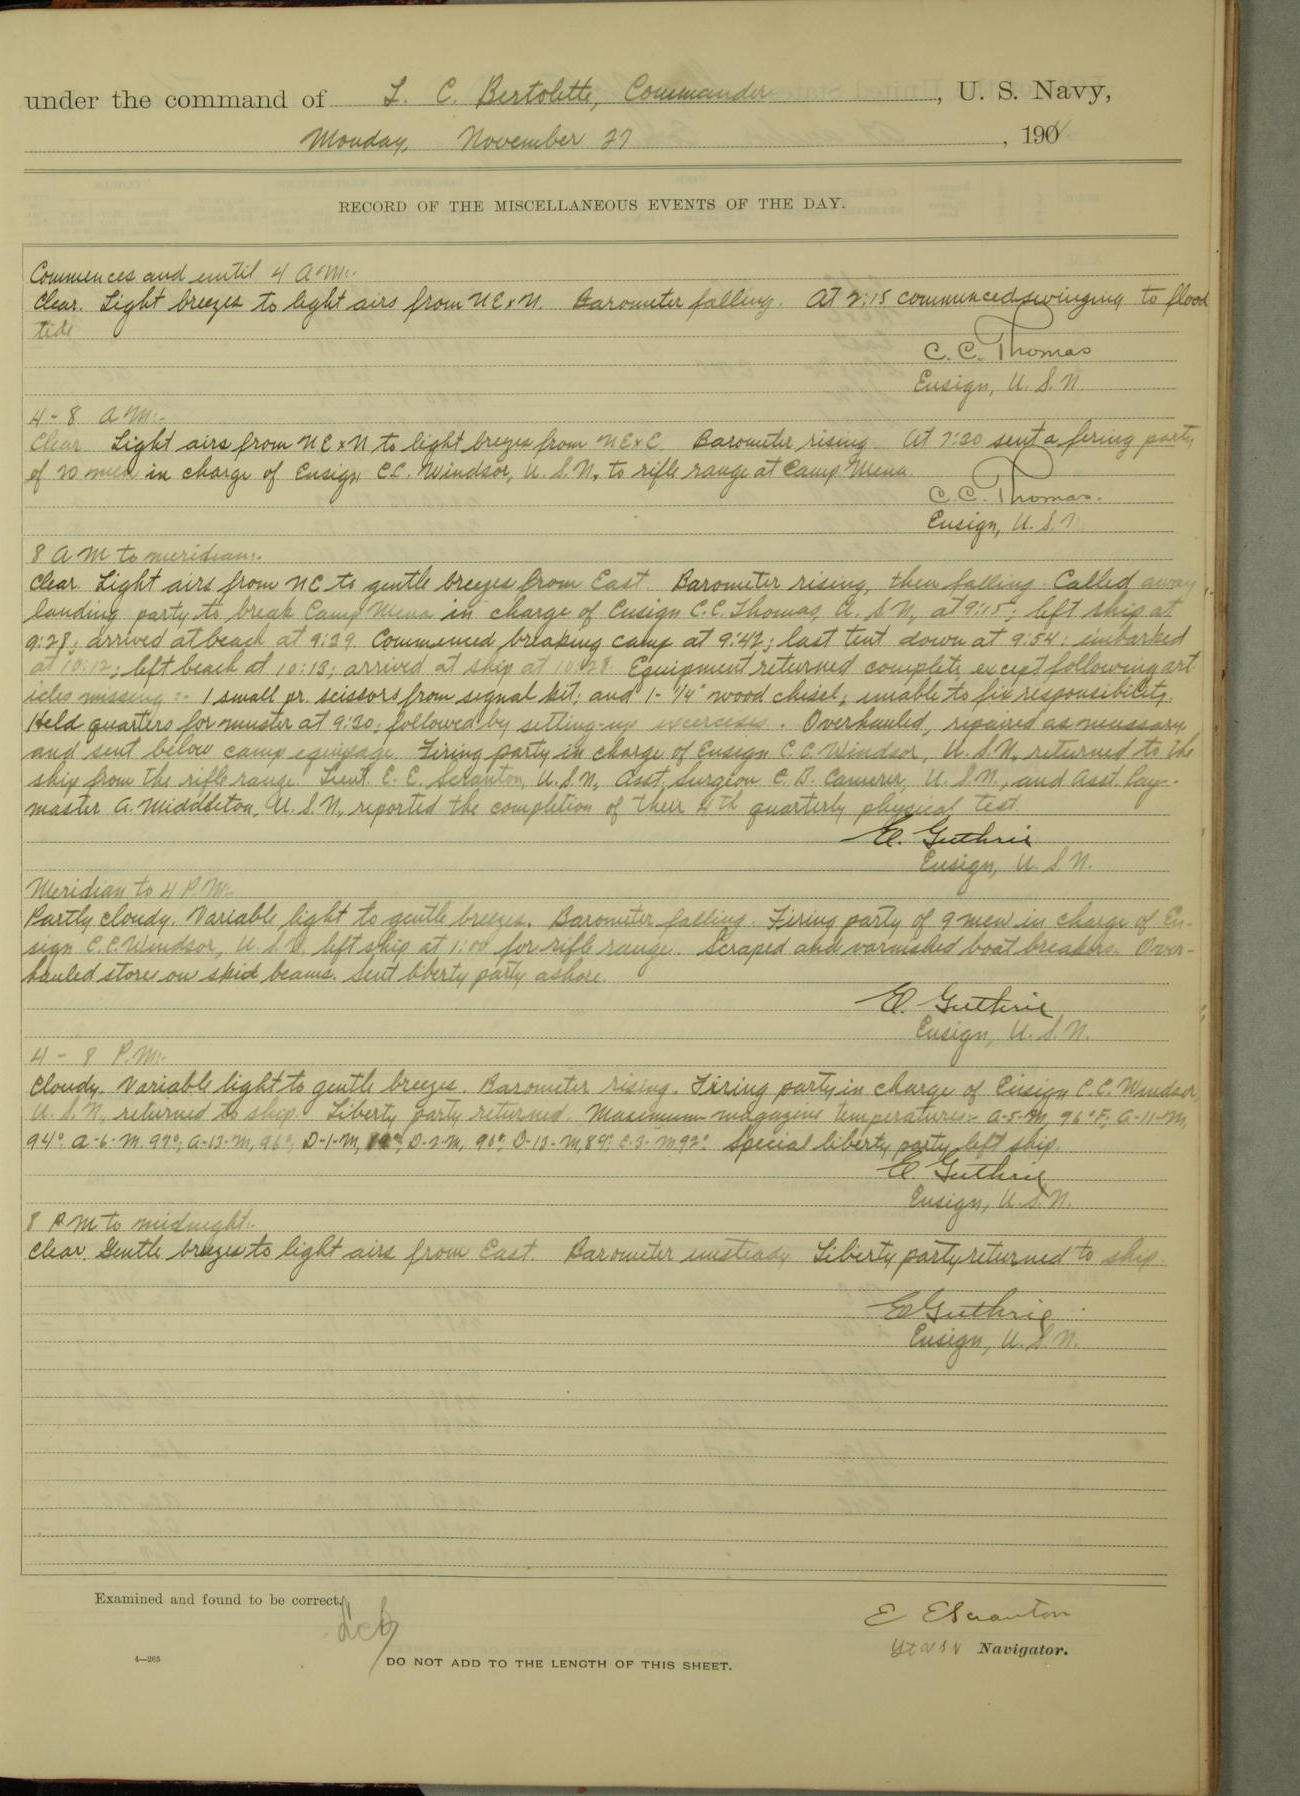 under the command of L. C. Bertolette, Commander, U. S. Navy,
Monday, November 27, 190
RECORD OF THE MISCELLANEOUS EVENTS OF THE DAY.
Commences and until 4 A.M:-
Clear. Light breezes to light airs from NExN. Barometer falling. At 2:15 commenced swinging to flood
tide
C. C. Thomas
Ensign, U. S. N.
4-8 A.M:-
Clear Light airs from NExN to light breezes from NExE Barometer rising. At 7:20 sent a firing party
of 20 men in charge of Ensign C.C. Windsor, U. S. N. to rifle range at Camp Mena
C. C. Thomas.
Ensign, U. S. N
8 A M to meridian:-
Clear. Light airs from NE to gentle breezes from East. Barometer rising, then falling. Called away
landing party to break Camp Mena in charge of Ensign C.C. Thomas, U. S. N., at 9:15; left ship at
9:28; arrived at beach at 9:39. Commenced breaking camp at 9:42; last tent down at 9:54; embarked
at 10:12; left beach at 10:13; arrived at ship at 10:28. Equipment returned complete except following art
icles missing:- 1 small pr. scissors from signal kit; and 1- 1/4" wood chisel; unable to fix responsibility.
Held quarters for muster at 9:30; followed by setting-up exercises. Overhauled, repaired as necessary
and sent below camp equipage. Firing party in charge of Ensign C. C. Windsor, U. S. N. returned to the
ship from the rifle range. Lieut. E. E. Scranton, U.S.N., Asst. Surgeon C. B. Camerer, U. S. N., and Asst. Pay-
master A. Middleton, U. S. N., reported the completion of their 4th quarterly physical test.
E. Guthrie
Ensign, U. S. N.
Meridian to 4 P.M:-
Partly cloudy. Variable light to gentle breezes. Barometer falling. Firing party of 9 men in charge of En-
sign C. C. Windsor, U. S. N. left ship at 1:00 for rifle range. Scraped and varnished boat breakers. Over-
hauled stores on skid beams. Sent liberty party ashore.
E. Guthrie
Ensign, U. S. N.
4 - 8 P.M:-
Cloudy. Variable light to gentle breezes. Barometer rising. Firing party in charge of Ensign C. C. Windsor,
U. S. N., returned to ship. Liberty party returned. Maximum magazine temperatures:- A-5-M, 96°F, A-11-M,
94°, A-6-M, 97°, A-13-M, 96°, D-1-M, D-2-M, 90°, D-13-M, 89°, E-3-M 92°. Special liberty party left ship.
E. Guthrie
Ensign, U. S. N.
8 P M to midnight:-
Clear. Gentle breezes to light airs from East. Barometer unsteady. Liberty party returned to ship.
E Guthrie
Ensign, U. S. N.
Examined and found to be correct.
LCB
E E Scranton
Lt U S N Navigator.
4—265
DO NOT ADD TO THE LENGTH OF THIS SHEET.